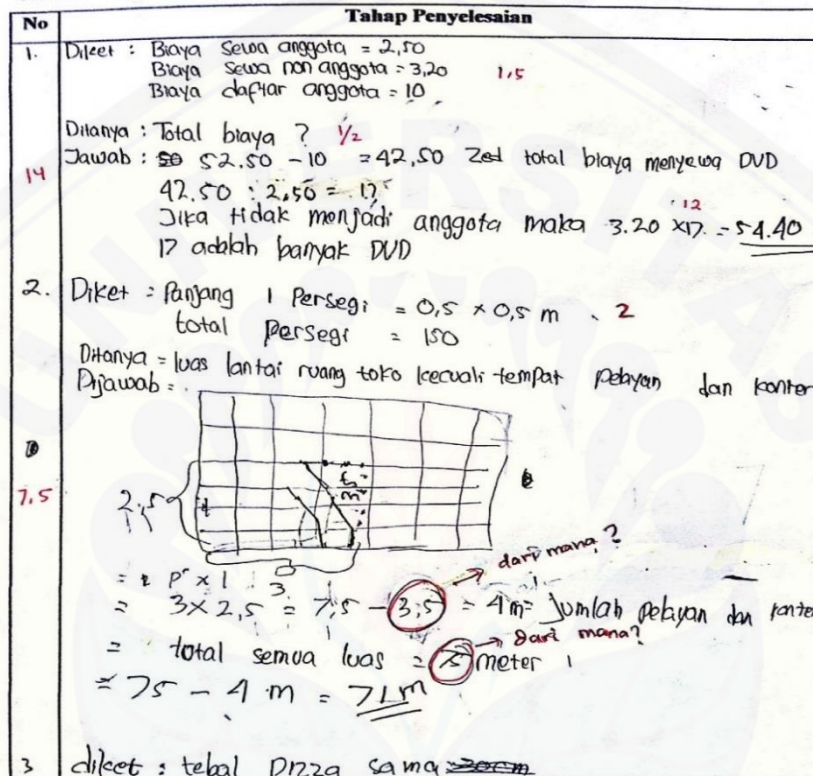 No Tahap Penyelesaian
1. Diket : Biaya sewa anggota = 2,50
Biaya sewa non anggota = 3,20 1,5
Biaya daftar anggota = 10
Ditanya : Total biaya ? 1/2
14
Jawab : 52.50 - 10 = 42,50 total biaya menyewa DVD
42.50 : 2,50 = 17
12
Jika tidak menjadi anggota maka 3.20 x 17 = 54.40
17 adalah banyak DVD
2. Diket = Panjang 1 Persegi = 0,5 x 0,5 m 2
total Persegi = 150
Ditanya = luas lantai ruang toko kecuali tempat pelayan dan konter
Dijawab =
7,5
2,5
3
dari mana ?
= p x l
= 3 x 2,5 = 7,5 - 3,5 = 4 m = Jumlah pelayan dan konter
dari mana?
= total semua luas = 75 meter
= 75 - 4 m = 71 m
3 diket : tebal pizza sama
UNIVERSITAS